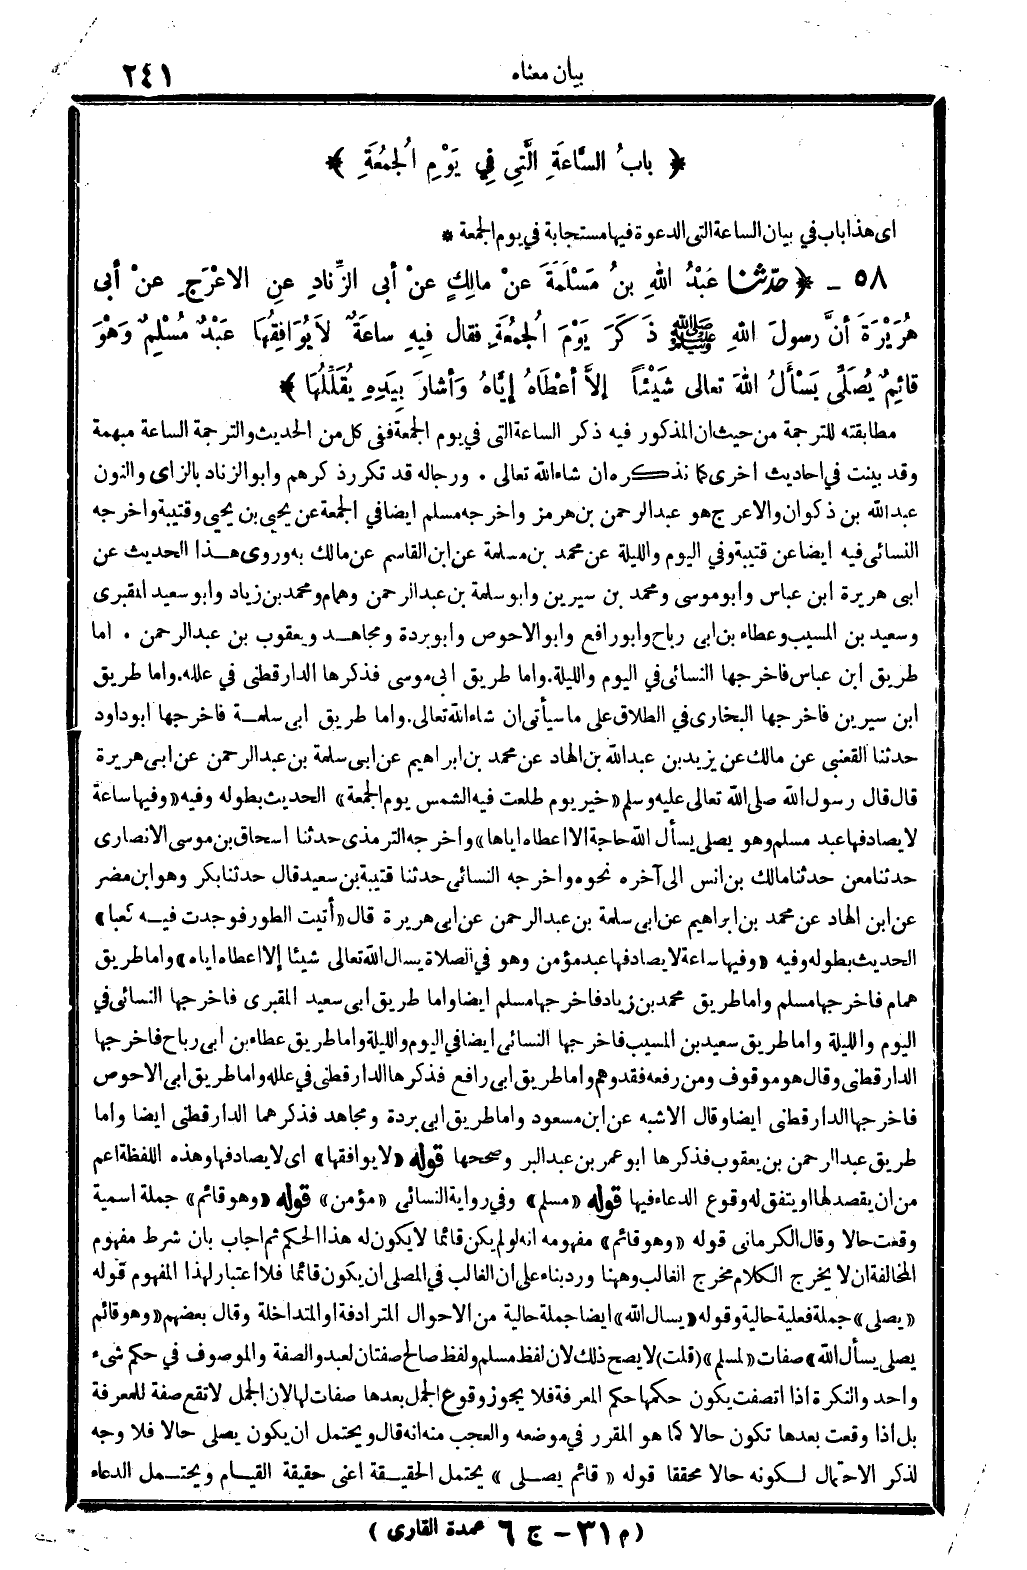 بيان معناه ٢٤١
﴿ بابُ السَّاعَةِ الَّتِي فِي يَوْمِ الْجُمُعَةِ ﴾
اى هذا باب في بيان الساعة التى الدعوة فيها مستجابة في يوم الجمعة *
٥٨ ـ ﴿ حَدَّثَنَا عَبْدُ اللهِ بنُ مَسْلَمَةَ عنْ مالِكٍ عنْ أبى الزِّنادِ عنِ الاعْرَجِ عنْ أبى
هُرَيْرَةَ أنَّ رسولَ اللهِ ﷺ ذَكَرَ يَوْمَ الْجُمُعَةِ فقال فِيهِ ساعَةٌ لاَ يُوَافِقُهَا عَبْدٌ مُسْلِمٌ وَهْوَ
قائِمٌ يُصَلِّى يَسْأَلُ اللهَ تعالى شَيْئاً إلاَّ أعْطَاهُ إيَّاهُ وَأشارَ بِيَدِهِ يُقَلِّلُهَا ﴾
مطابقته للترجمة من حيث ان المذكور فيه ذكر الساعة التى في يوم الجمعة ففى كل من الحديث والترجمة الساعة مبهمة
وقد بينت في احاديث اخرى كما نذكره ان شاء الله تعالى . ورجاله قد تكرر ذكرهم وابو الزناد بالزاى والنون
عبد الله بن ذكوان والاعرج هو عبد الرحمن بن هرمز واخرجه مسلم ايضا في الجمعة عن يحيى بن يحيى وقتيبة واخرجه
النسائى فيه ايضا عن قتيبة وفي اليوم والليلة عن محمد بن مسلمة عن ابن القاسم عن مالك به وروى هذا الحديث عن
ابى هريرة ابن عباس وابو موسى ومحمد بن سيرين وابو سلمة بن عبد الرحمن وهمام ومحمد بن زياد وابو سعيد المقبرى
وسعيد بن المسيب وعطاء بن ابى رباح وابو رافع وابو الاحوص وابو بردة ومجاهد ويعقوب بن عبد الرحمن . اما
طريق ابن عباس فاخرجها النسائى في اليوم والليلة. واما طريق ابى موسى فذكرها الدارقطنى في علله. واما طريق
ابن سيرين فاخرجها البخارى في الطلاق على ما سيأتى ان شاء الله تعالى. واما طريق ابى سلمة فاخرجها ابو داود
حدثنا القعنبى عن مالك عن يزيد بن عبد الله بن الهاد عن محمد بن ابراهيم عن ابى سلمة بن عبد الرحمن عن ابى هريرة
قال قال رسول الله صلى الله تعالى عليه وسلم «خير يوم طلعت فيه الشمس يوم الجمعة» الحديث بطوله وفيه «وفيها ساعة
لا يصادفها عبد مسلم وهو يصلى يسأل الله حاجة الا اعطاه اياها» واخرجه الترمذى حدثنا اسحاق بن موسى الانصارى
حدثنا معن حدثنا مالك بن انس الى آخره نحوه واخرجه النسائى حدثنا قتيبة بن سعيد قال حدثنا بكر وهو ابن مضر
عن ابن الهاد عن محمد بن ابراهيم عن ابى سلمة بن عبد الرحمن عن ابى هريرة قال «أتيت الطور فوجدت فيه كعبا»
الحديث بطوله وفيه «وفيها ساعة لا يصادفها عبد مؤمن وهو في الصلاة يسال الله تعالى شيئا إلا اعطاه اياه» واما طريق
همام فاخرجها مسلم واما طريق محمد بن زياد فاخرجها مسلم ايضا واما طريق ابى سعيد المقبرى فاخرجها النسائى في
اليوم والليلة واما طريق سعيد بن المسيب فاخرجها النسائى ايضا في اليوم والليلة واما طريق عطاء بن ابى رباح فاخرجها
الدارقطنى وقال هو موقوف ومن رفعه فقد وهم واما طريق ابى رافع فذكرها الدارقطنى في علله واما طريق ابى الاحوص
فاخرجها الدارقطنى ايضا وقال الاشبه عن ابن مسعود واما طريق ابى بردة ومجاهد فذكرهما الدارقطنى ايضا واما
طريق عبد الرحمن بن يعقوب فذكرها ابو عمر بن عبد البر وصححها قوله «لا يوافقها» اى لا يصادفها وهذه اللفظة اعم
من ان يقصد لها او يتفق له وقوع الدعاء فيها قوله «مسلم» وفي رواية النسائى «مؤمن» قوله «وهو قائم» جملة اسمية
وقعت حالا وقال الكرمانى قوله «وهو قائم» مفهومه انه لو لم يكن قائما لا يكون له هذا الحكم ثم اجاب بان شرط مفهوم
المخالفة ان لا يخرج الكلام مخرج الغالب وههنا ورد بناء على ان الغالب في المصلى ان يكون قائما فلا اعتبار لهذا المفهوم قوله
«يصلى» جملة فعلية حالية وقوله «يسال الله» ايضا جملة حالية من الاحوال المترادفة او المتداخلة وقال بعضهم «وهو قائم
يصلى يسأل الله» صفات «لمسلم» (قلت) لا يصح ذلك لان لفظ مسلم ولفظ صالح صفتان لعبد والصفة والموصوف في حكم شىء
واحد والنكرة اذا اتصفت يكون حكمها حكم المعرفة فلا يجوز وقوع الجمل بعدها صفات لها لان الجمل لا تقع صفة للمعرفة
بل اذا وقعت بعدها تكون حالا كما هو المقرر في موضعه والعجب منه انه قال ويحتمل ان يكون يصلى حالا فلا وجه
لذكر الاحتمال لكونه حالا محققا قوله « قائم يصلى » يحتمل الحقيقة اعنى حقيقة القيام ويحتمل الدعاء
(م ٣١ - ج ٦ عمدة القارى )